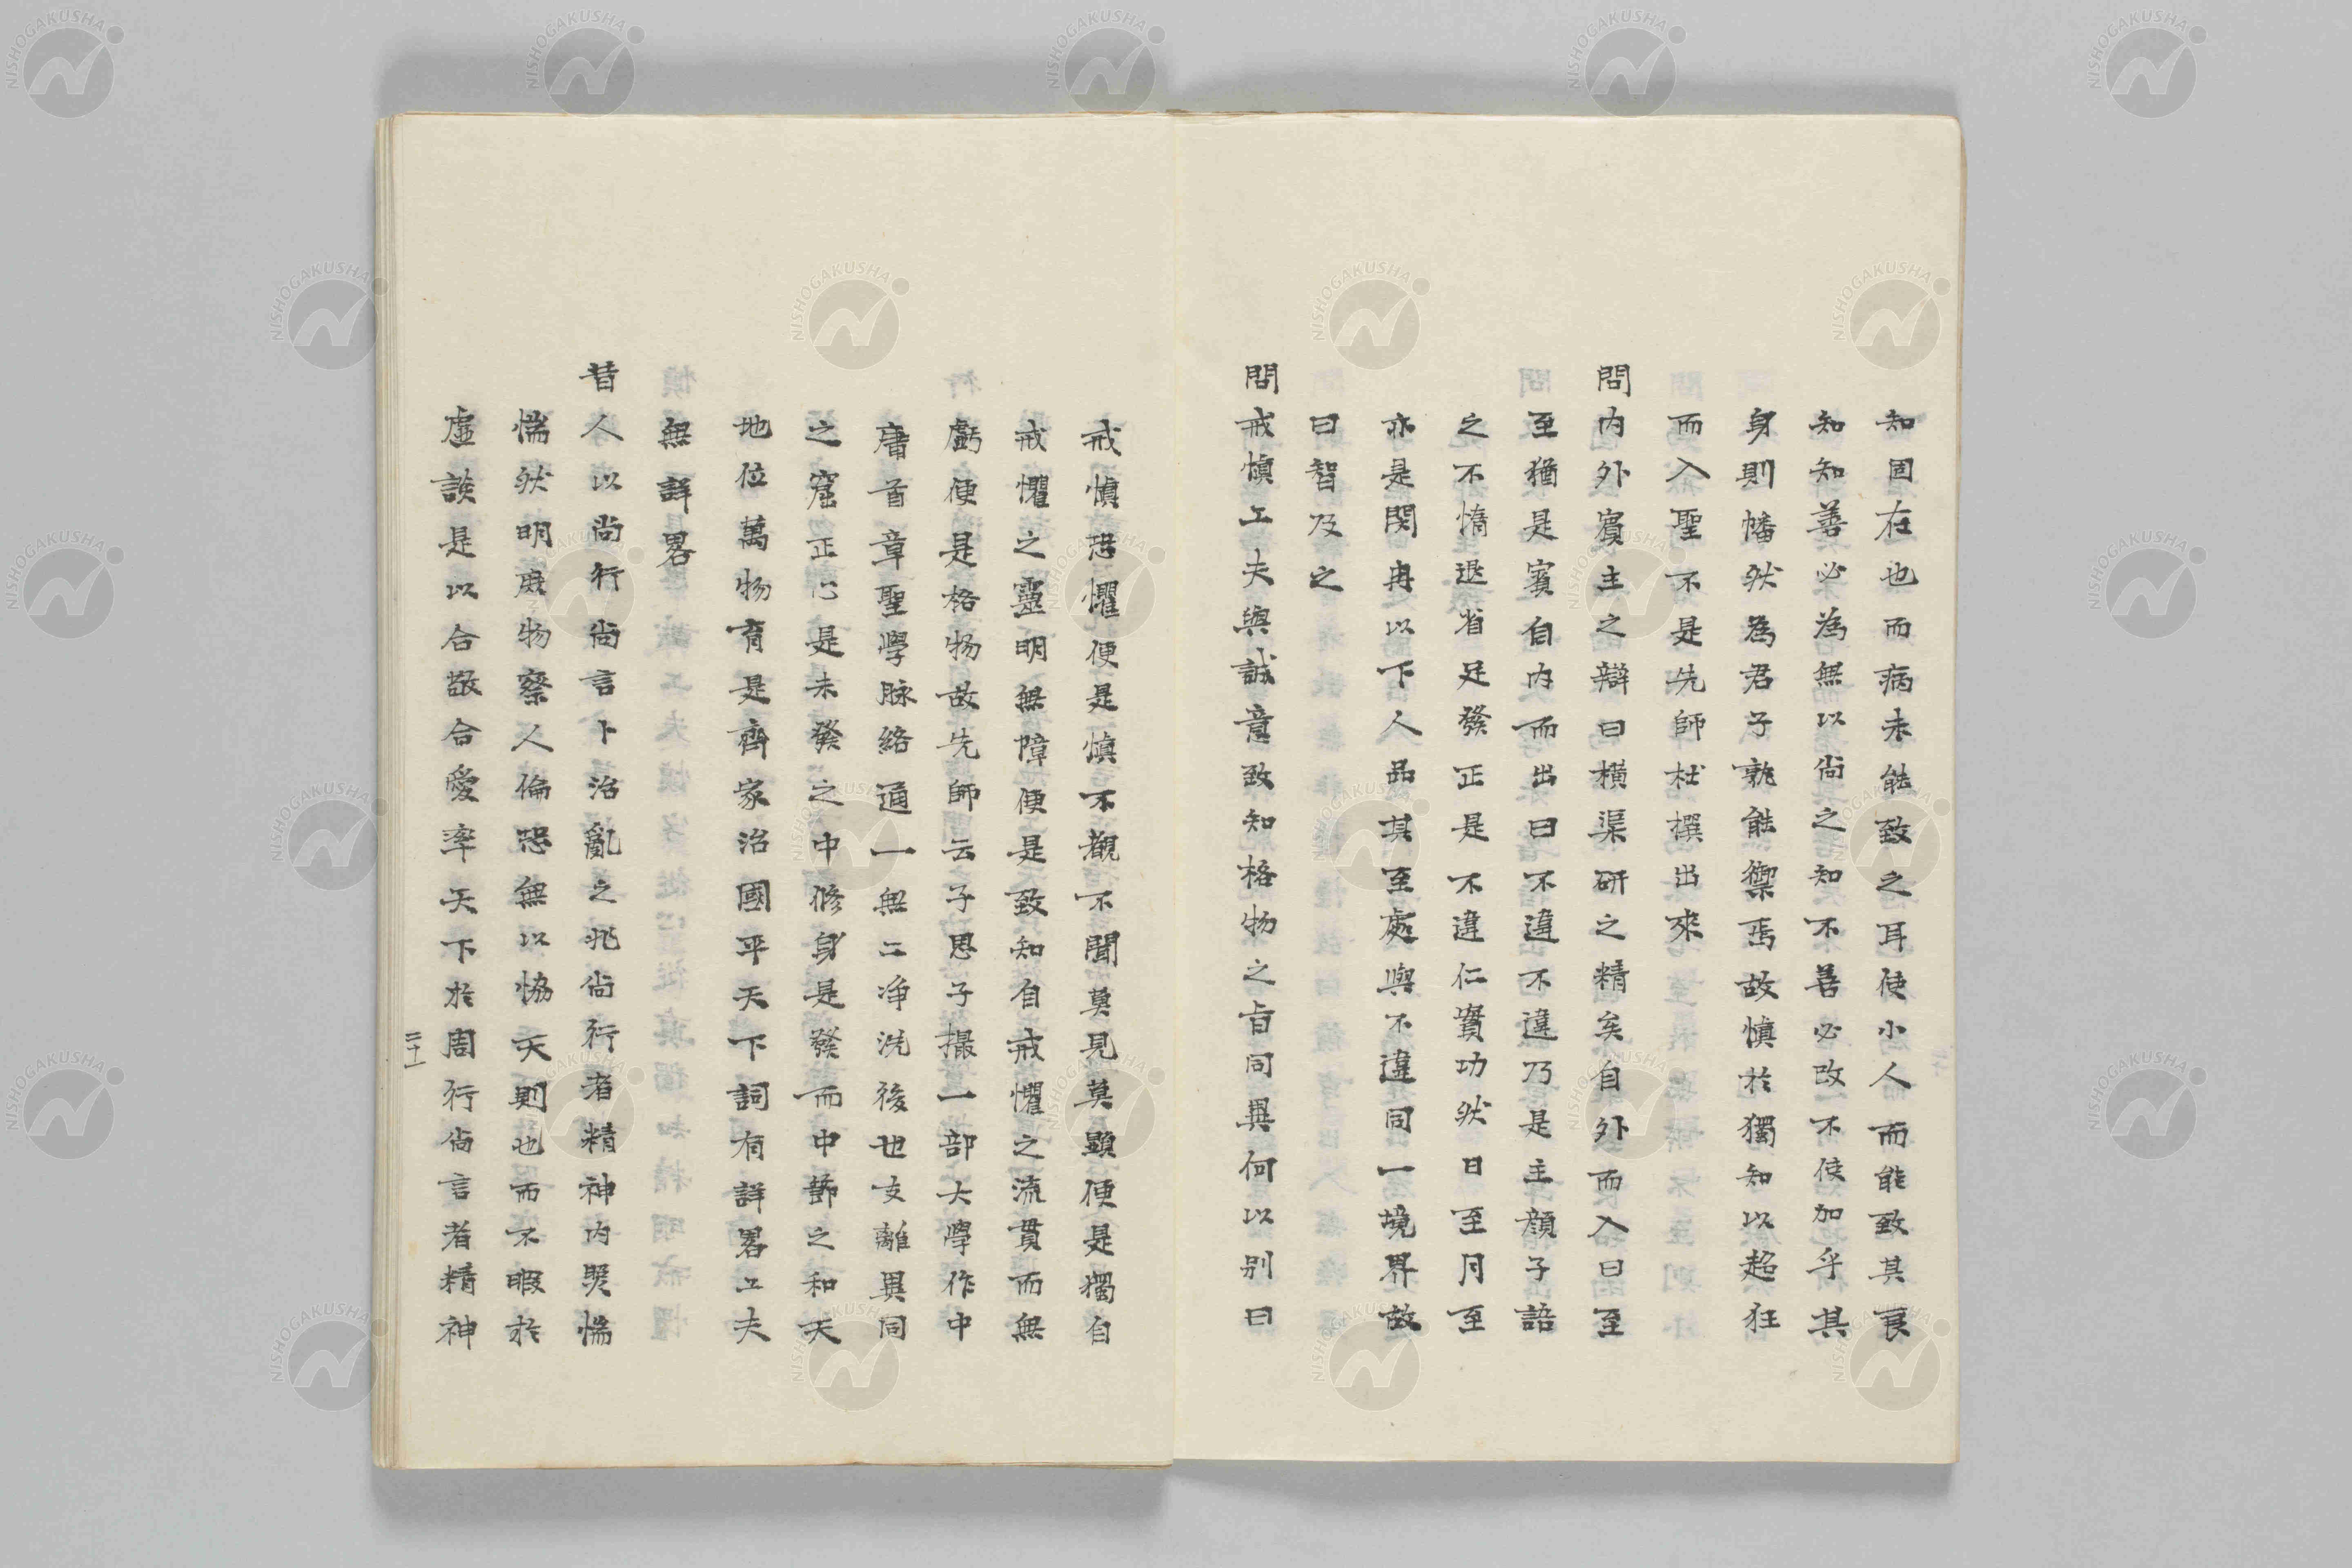 知固在也而病未能致之耳使小人而能致其良
知知善必為無以尚之知不善必改一不使加乎其
身則幡然為君子孰能禦焉故慎於獨知以超狂
而入聖不是先師杜撰出來
問内外賓主之辯曰橫渠研之精矣自外而入曰至
至猶是賓自内而出曰不違不違乃是主顏子語
之不惰退省足發正是不違仁實功然日至月至
亦是閔冉以下人品其至處與不違同一境界故
曰智及之
問戒慎工夫與誠意致知格物之旨同異何以別曰
戒慎恐懼便是慎不覩不聞莫見莫顯便是獨自
戒懼之靈明無障便是致知自戒懼之流貫而無
虧便是格物故先師云子思子撮一部大學作中
庸首章聖學脉絡通一無二淨洗後世支離異同
之窟正心是未發之中修身是發而中節之和天
地位萬物育是齊家治國平天下詞有詳畧工夫
無詳畧
昔人以尚行尚言卜治亂之兆尚行者精神内㷼惴
惴然明庶物察人倫恐無以恊天則也而不暇於
虛談是以合敬合愛率天下於周行尚言者精神
二十一
NISHOGAKUSHA